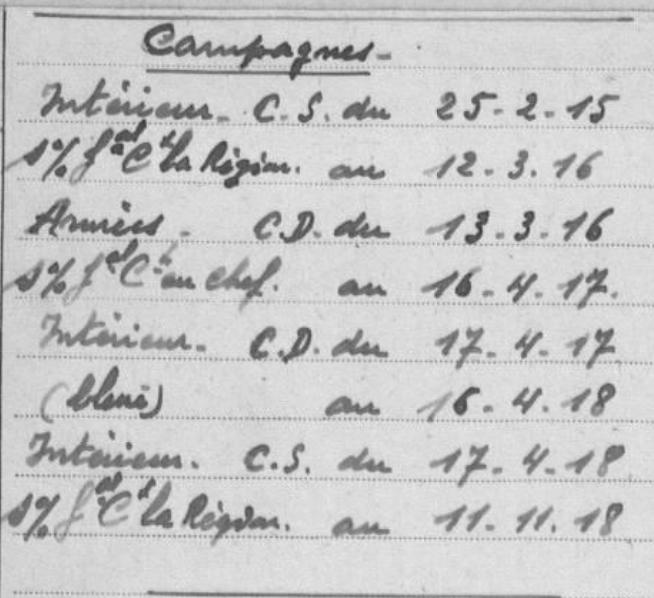 Campagnes -
Intérieur - C.S. du 25-2-15
s/o Gal Ct la Région. au 12.3.16
Armées - C.D. du 13.3.16
s/o Gal Ct en chef. au 16-4-17.
Intérieur - C.D. du 17-4-17
(blessé) au 16-4.18
Intérieur. C.S. du 17-4-18
s/o Gal Ct la Région. au 11.11.18